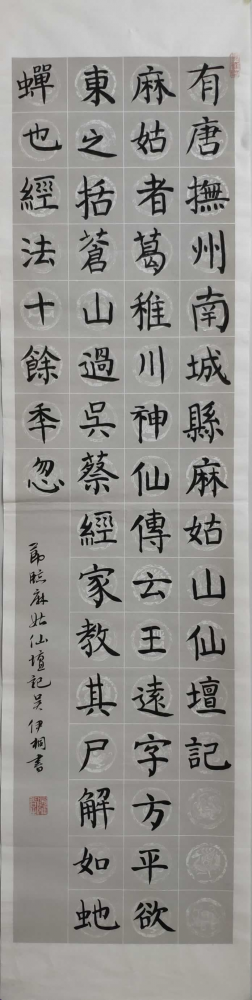 有唐撫州南城縣麻姑山仙壇記
麻姑者葛稚川神仙傳云王遠字方平欲
東之括蒼山過吳蔡經家教其尸解如虵
蟬也經法十餘秊忽
節臨麻姑仙壇記吳伊桐書